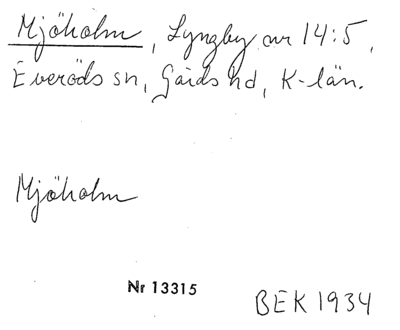 Mjöholm, Lyngby nr 14:5,
Everöds sn, Gärds hd, K-län.
Mjöholm
Nr 13315
BEK 1934